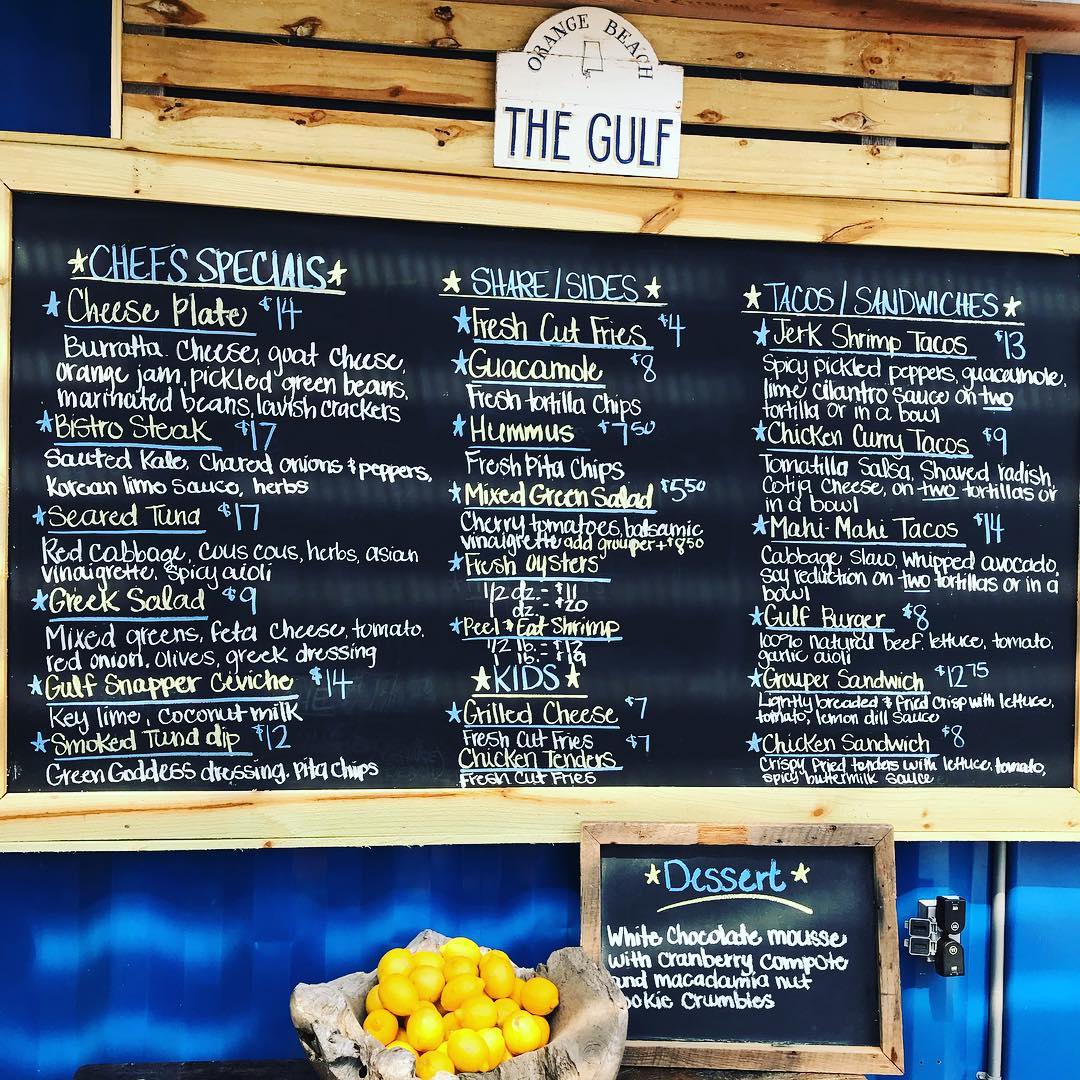 ORANGE BEACH
THE GULF
CHEFS SPECIALS
Cheese Plate $14
Burratta. Cheese, goat cheese,
orange jam, pickled green beans,
marinated beans, lavish crackers
Bistro Steak $17
Sauted Kale, Chared onions & peppers,
Korean lime sauce, herbs
Seared Tuna $17
Red cabbage, cous cous, herbs, asian
vinaigrette, spicy aioli
Greek Salad $9
Mixed greens, feta cheese, tomato,
red onion, olives, greek dressing
Gulf Snapper Ceviche $14
Key lime, coconut milk
Smoked Tuna dip $12
Green Goddess dressing, pita chips
SHARE/SIDES
Fresh Cut Fries $4
Guacamole $8
Fresh tortilla Chips
Hummus $7 50
Fresh Pita Chips
Mixed Green Salad $5 50
Cherry tomatoes, balsamic
vinaigrette add grouper + $8 50
Fresh oysters
1/2 dz. - $11
1 dz. - $20
Peel & Eat Shrimp
1/2 lb. - $12
1 lb. - $19
KIDS
Grilled Cheese $7
Fresh Cut Fries
Chicken Tenders $7
Fresh Cut Fries
TACOS/SANDWICHES
Jerk Shrimp Tacos $13
Spicy pickled peppers, guacamole,
lime cilantro sauce on two
tortilla or in a bowl
Chicken Curry Tacos $9
Tomatilla Salsa, Shaved radish,
Cotija Cheese, on two tortillas or
in a bowl
Mahi-Mahi Tacos $14
Cabbage Slaw, whipped avocado,
soy reduction on two tortillas or in a
bowl
Gulf Burger $8
100% natural beef, lettuce, tomato,
garlic aioli
Grouper Sandwich $12 75
Lightly breaded & fried crisp with lettuce,
tomato, lemon dill sauce
Chicken Sandwich $8
Crispy fried tenders with lettuce, tomato,
spicy buttermilk sauce
Dessert
White Chocolate mousse
with cranberry compote
and macadamia nut
cookie crumbles